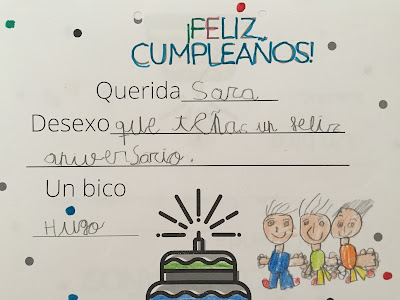 ¡FELIZ
CUMPLEAÑOS!
Querida Sara
Desexo que teñas un feliz
aniversario.
Un bico
Hugo